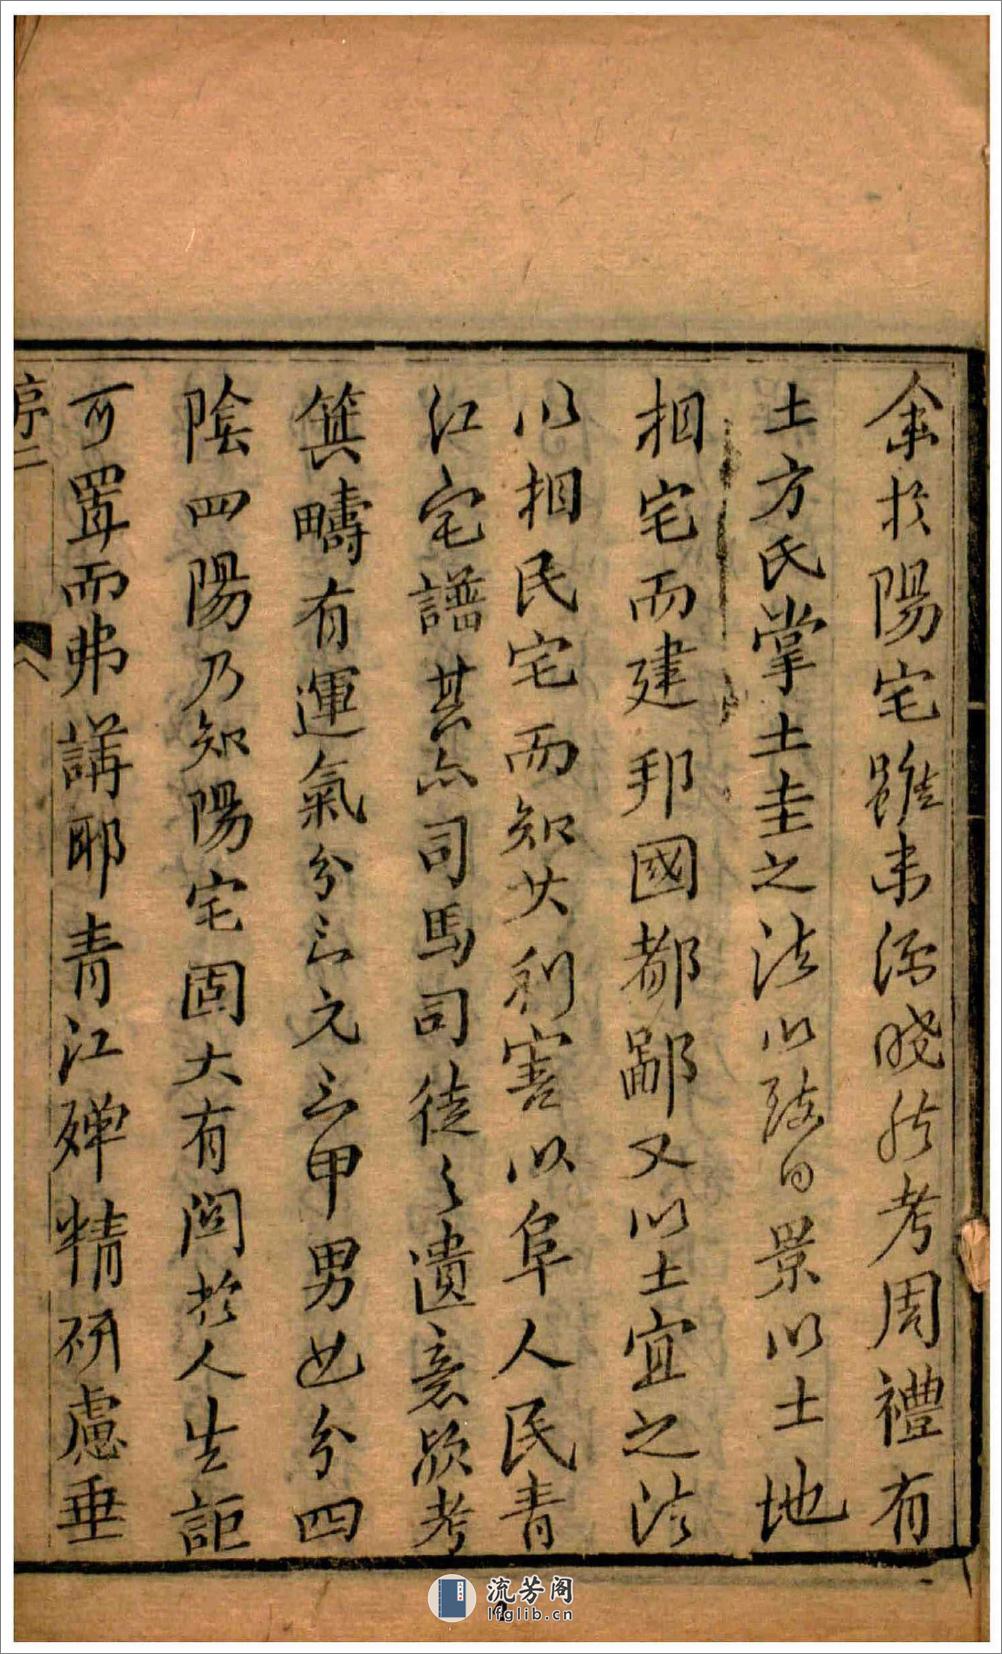 余扵陽宅雖未深曉然考周禮有
土方氏掌土圭之法以致日景以土地
相宅而建邦國都鄙又以土宜之法
以相民宅而知其利害以阜人民青
江宅譜其亦司馬司徒之遺意歟考
箕疇有運氣分三元三甲男女分四
陰四陽乃知陽宅固大有関扵人生詎
可置而弗講耶青江殫精研慮垂
序二
流芳阁
lfglib.cn